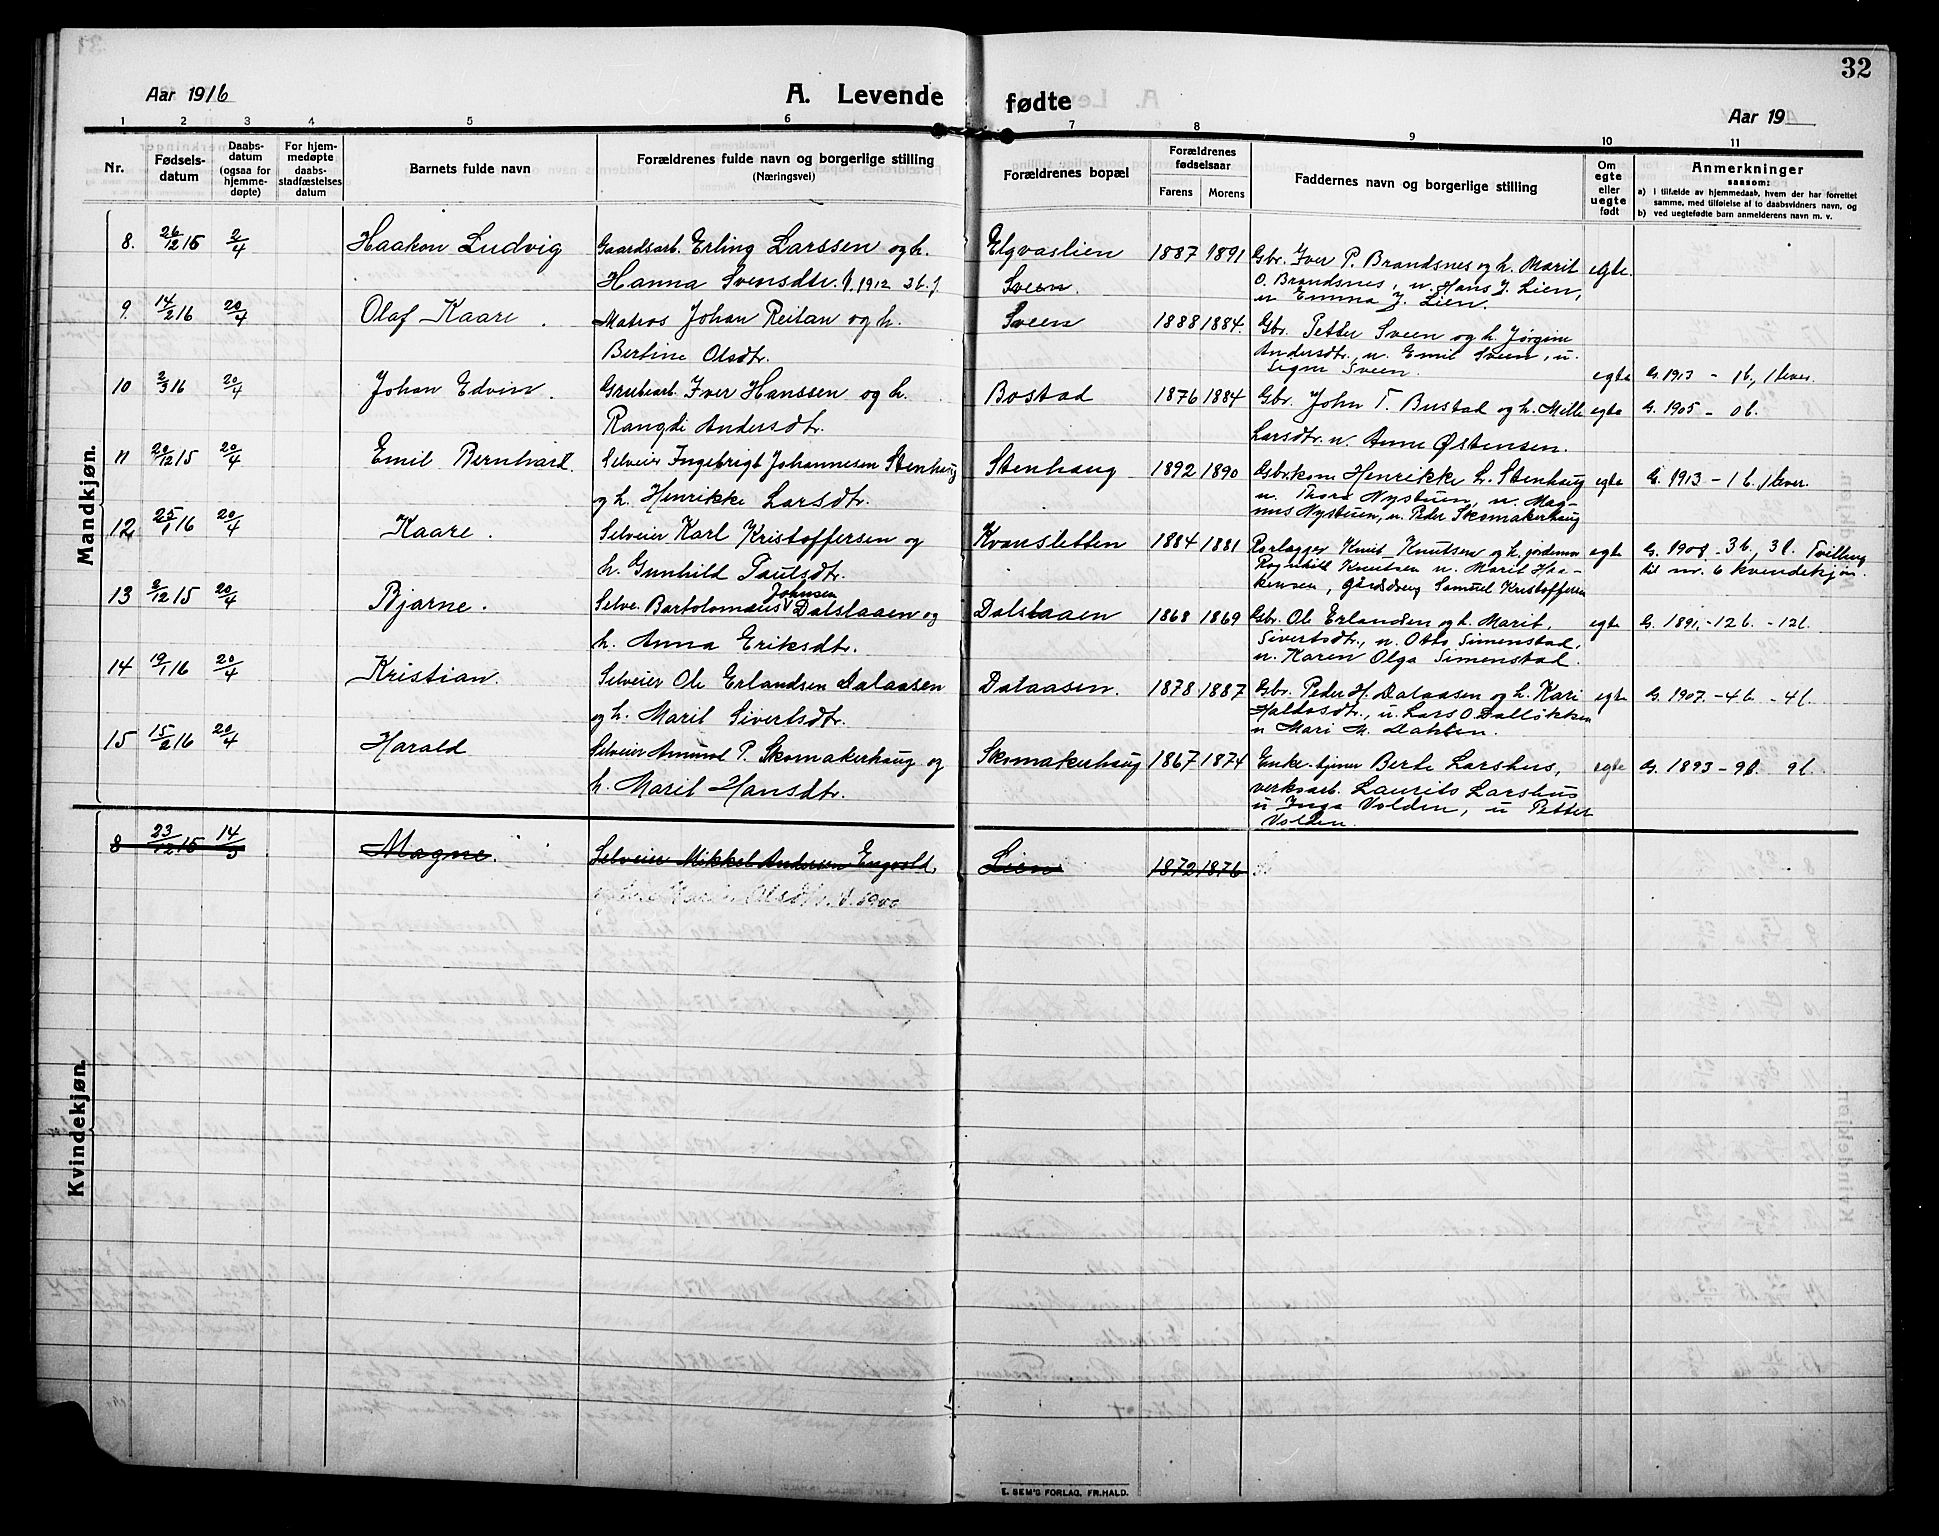 32
Aar 1916
A. Levende fødte
Aar 19
1 2 3 4 5 6 7 8 9 10 11
Nr.
Fødselsdatum
Daabsdatum (ogsaa for hjemmedøpte)
For hjemmedøpte daabsstadfæstelses datum
Barnets fulde navn
Forældrenes fulde navn og borgerlige stilling (Næringsvei)
Forældrenes bopæl
Forældrenes fødselsaar
Farens Morens
Faddernes navn og borgerlige stilling
Om egte eller uegte født
Anmerkninger
saasom:
a) i tilfælde av hjemmedaab, hvem der har forrettet samme, med tilføielse af to daabsvidners navn, og
b) ved uegtefødte barn anmelderens navn m. v.
Mandkjøn.
8. 26/12 15 2/4 Haakon Ludvig Gaardsarb. Erling Larssen og h. Elgvaslien 1887 1891 Gbr. Iver P. Brandsnes og h. Marit egte
Hanna Svensdtr. V. 1912 3 b. Sveen. O. Brandsnes, u. Hans J. Lien,
u Emma J. Lien.
9. 14/2 16 20/4 Olaf Kaare. Matros Johan Reitan og h. Sveen 1888 1884. Gbr. Petter Sveen og h. Jørgine
Bertine Olsdtr. Andersdtr., u. Emil Sveen, u.
Signe Sveen. egte G. 1913 - 1 b., 1 lever.
10 2/3 16 20/4 Johan Edvin. Grubearb. Iver Hanssen og h. Bostad 1876 1884 Gbr. John T. Bustad og h. Mille egte G. 1905 - 0 b.
Rangdi Andersdtr. Larsdtr. u. Anne Østensen.
11 20/12 15 20/4 Emil Bernhard. Selveier Ingebrigt Johannesen Stenhaug Stenhaug 1892 1890 Gbrkone Henrikke L. Stenhaug egte G. 1913 - 1 b. 1 lever.
og h. Henrikke Larsdtr. u. Thora Nystuen, u. Magnus Nystuen, u. Peder Skomakerhaug
12 25/1 16 20/4 Kaare. Selveier Karl Kristoffersen og Kvansletten 1884 1881 Knut Knutsen og h. jordemor egte G. 1908 - 3 b, 3 l. Tvilling
h. Gunhild Paulsdtr. Ragnhild Knutsen u. Marit Haakensen, gårddreng Samuel Kristoffersen til nr. 6 kvindekjøn.
13 2/12 15 20/4 Bjarne. Selve. Bartolomæus Johnsen Dalslaaen og Dalslaaen 1868 1869 Gbr. Ole Erlandsen og h. Marit, egte G. 1891, - 12 b. - 12 l.
h. Anna Eriksdtr. Sivertsdtr., u. Otto Simenstad,
u. Karen Olga Simenstad.
14 19/1 16 20/4 Kristian. Selveier Ole Erlandsen Dalaasen Dalaasen. 1878 1887 Gbr. Peder H. Dalaasen og h. Kari egte G. 1907. - 4 b - 4 l.
og h. Marit Sivertsdtr. Haldosdtr., u. Lars O. Dalløkken
u Mari M. Dahlen.
15 15/2 16 20/4 Harald Selveier Amund P. Skomakerhaug og Skomakerhaug 1867 1874 Enke Berte Larshus, egte G. 1893 - 9 b. 9 l.
h. Marit Hansdtr. verksarb. Laurits Larshus
u Inga Volden, u Petter
Volden.
Kvindekjøn.
8 23/12 15 14/3 Magne. Selveier Mikkel Andersen Engvold Lien 1872 1876
Olsdtr. V. 1900
E. SEM'S FORLAG, FR.HALD.